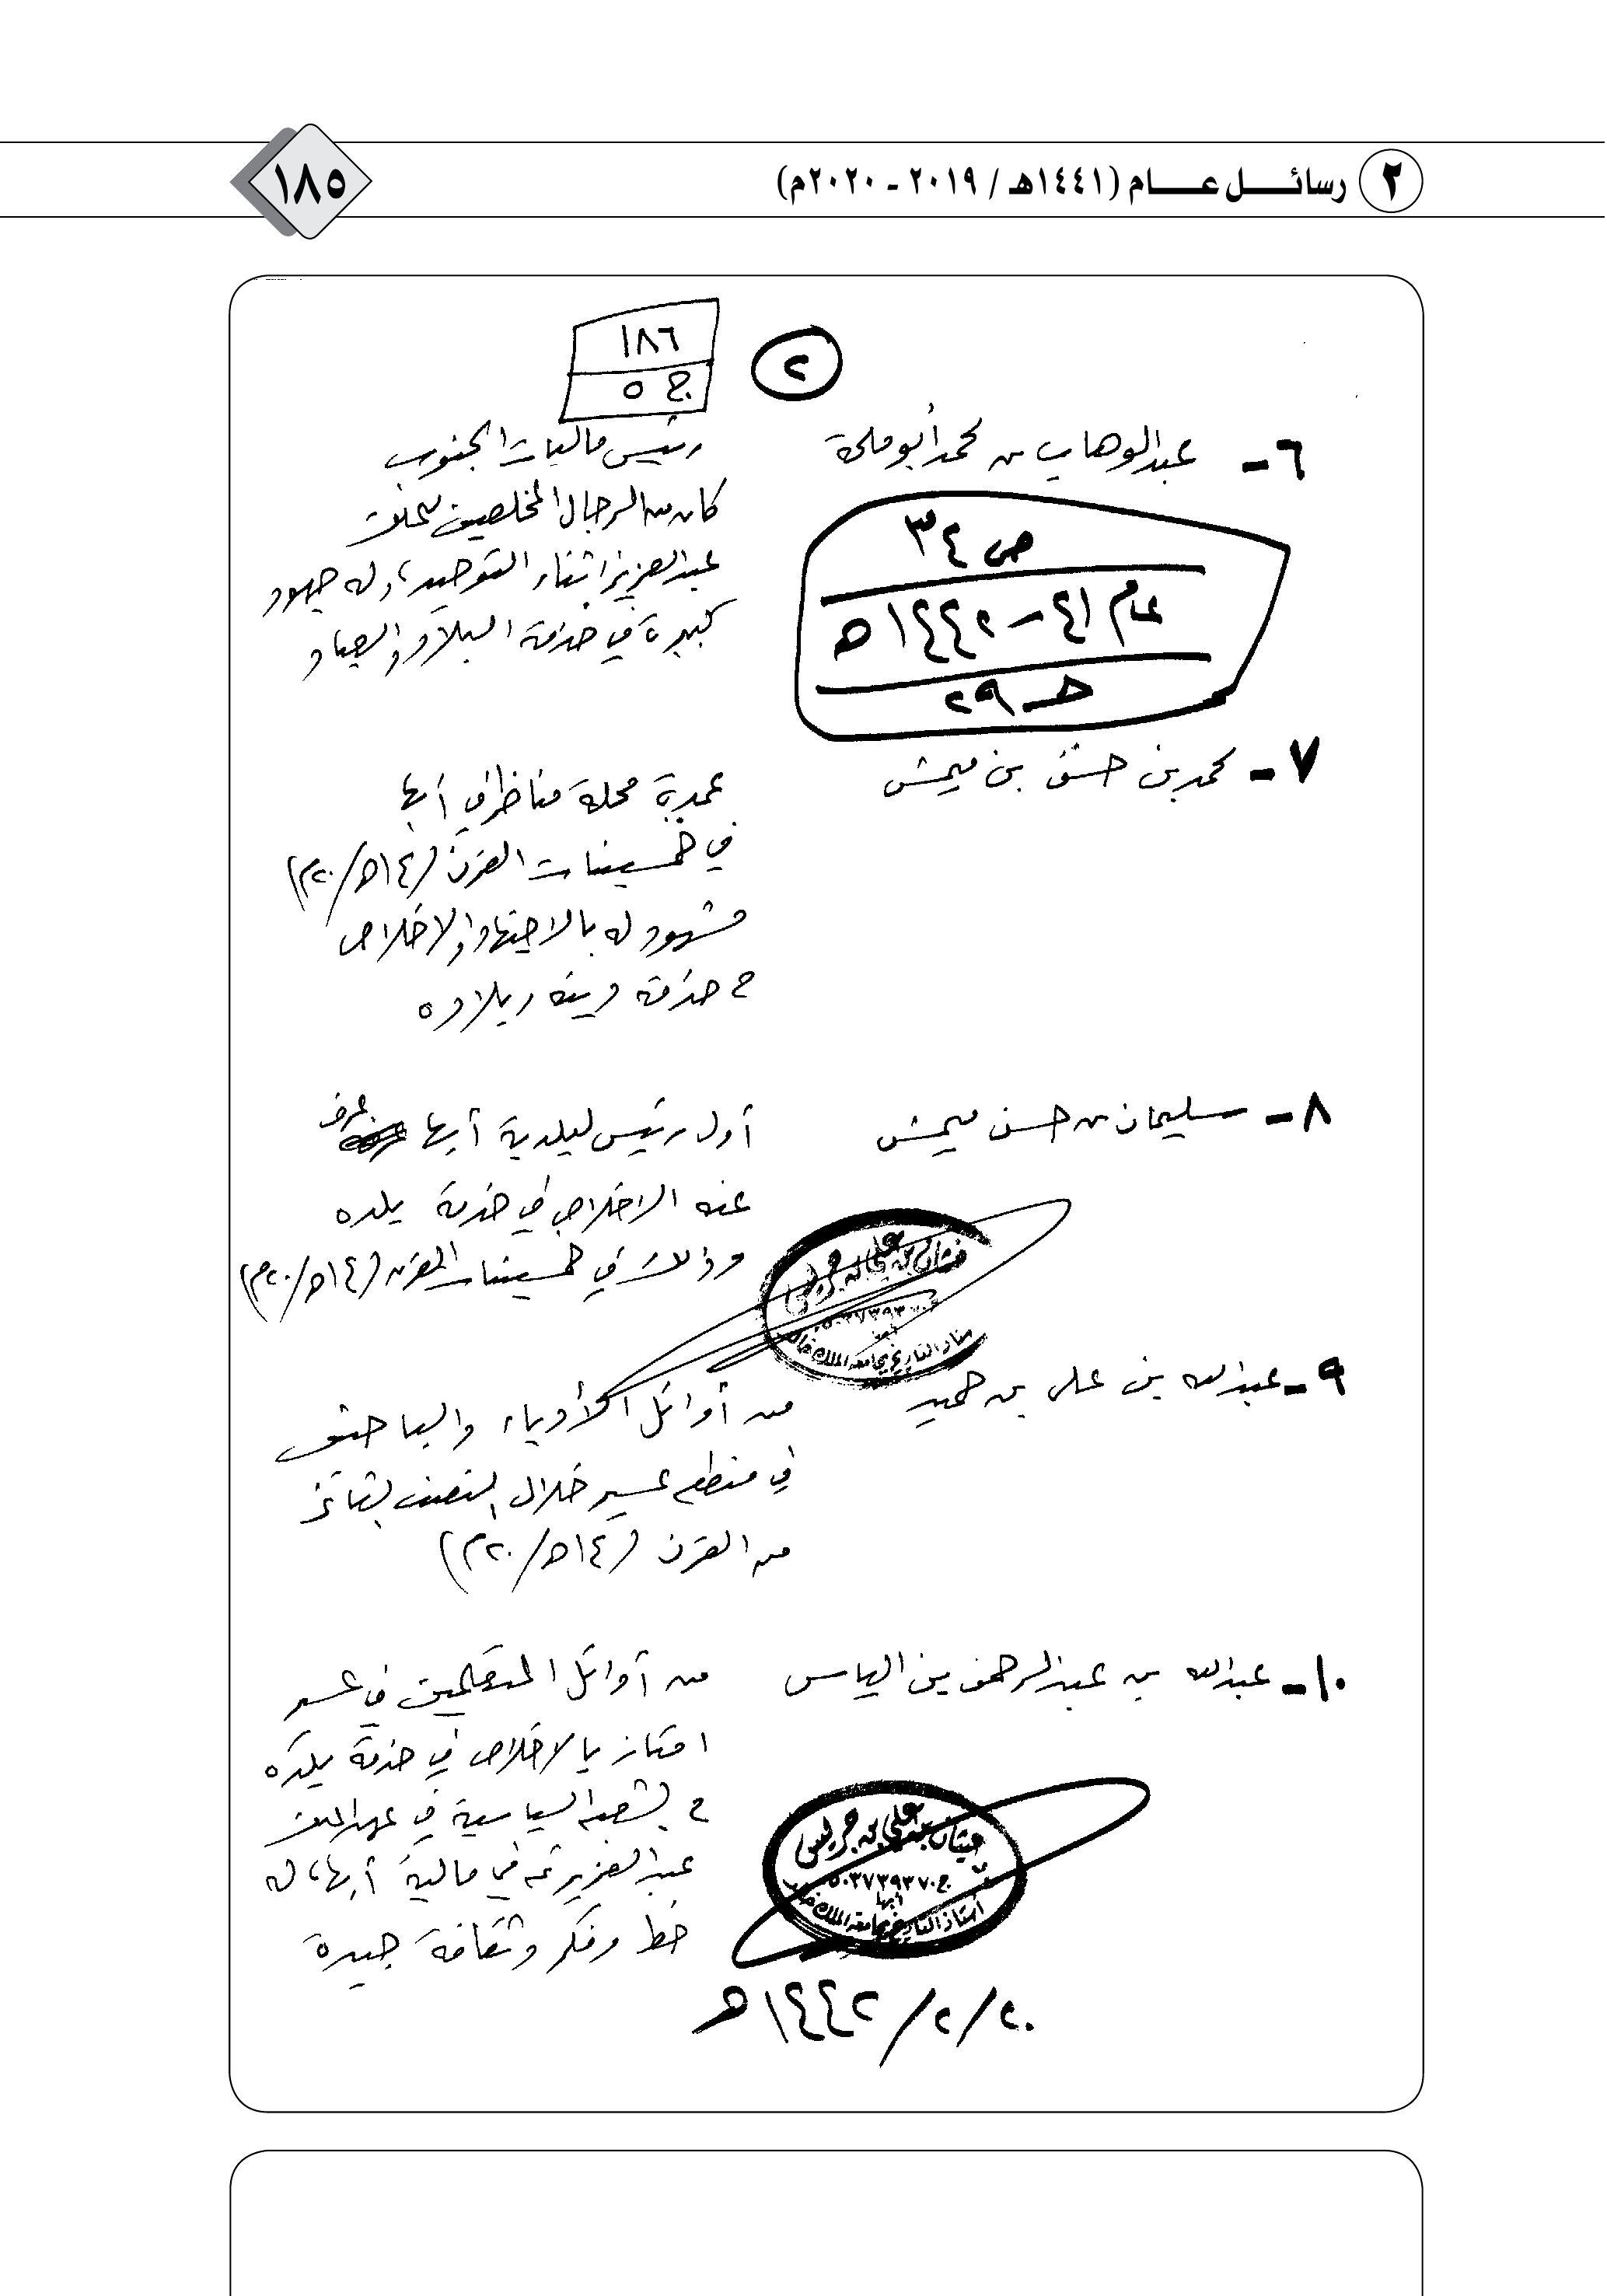 ٢ رسائل عام (١٤٤١هـ / ٢٠١٩ - ٢٠٢٠م)
١٨٥
١٨٦
ج ٥
٢
٦- عبدالوهاب بن محمد أبو ملحة
رئيس ماليات الجنوب
كان من الرجال المخلصين للملك
عبدالعزيز اثناء التوحيد، وله جهود
كبيرة في خدمة البلاد والعباد
ص ٣٤
عام ٤١ - ١٤٤٢ه
حـ ٢٩
٧- محمد بن حسن بن ميمش
عمدة محلة مناظر في أبها
في خمسينات القرن (١٤ه/٢٠م)
مشهود له بالاجتهاد والاخلاص
في خدمة دينه وبلاده
٨- سليمان بن حسن ميمش
أول رئيس لبلدية أبها عرف
عنه الاخلاص في خدمة بلده
وذلك في خمسينات القرن (١٤ه/٢٠م)
غيثان بن علي بن جريس
ج ٠٥٠٣٧٣٩٣٧٠
أبها
أستاذ التاريخ بجامعة الملك خالد
٩- عبدالله بن علي بن حميد
من أوائل الأدباء والباحثين
في منطقة عسير خلال النصف الثاني
من القرن (١٤ه/٢٠م)
١٠- عبدالله بن عبدالرحمن بن الياس
من أوائل المتعلمين في عسير
امتاز بالاخلاص في خدمة بلده
في الشعبة السياسية في عهد الملك
عبدالعزيز ثم في مالية أبها، له
خط وفكر وثقافة جيدة
غيثان بن علي بن جريس
ج ٠٥٠٣٧٣٩٣٧٠
أبها
أستاذ التاريخ بجامعة الملك خالد
٢٠/٢/١٤٤٢هـ